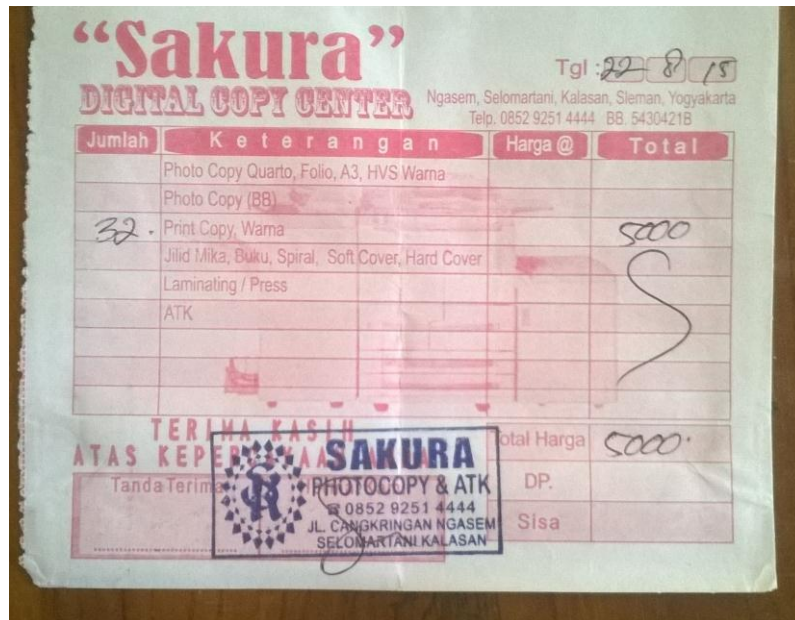 “Sakura”
DIGITAL COPY CENTER
Tgl : 22 8 15
Ngasem, Selomartani, Kalasan, Sleman, Yogyakarta
Telp. 0852 9251 4444 BB. 5430421B
Jumlah Keterangan Harga @ Total
Photo Copy Quarto, Folio, A3, HVS Warna
Photo Copy (BB)
32. Print Copy, Warna 5000
Jilid Mika, Buku, Spiral, Soft Cover, Hard Cover
Laminating / Press
ATK
TERIMA KASIH
ATAS
Total Harga 5000.
Tanda Terima
DP.
Sisa
SAKURA
PHOTOCOPY & ATK
☎ 0852 9251 4444
JL. CANGKRINGAN NGASEM
SELOMARTANI KALASAN